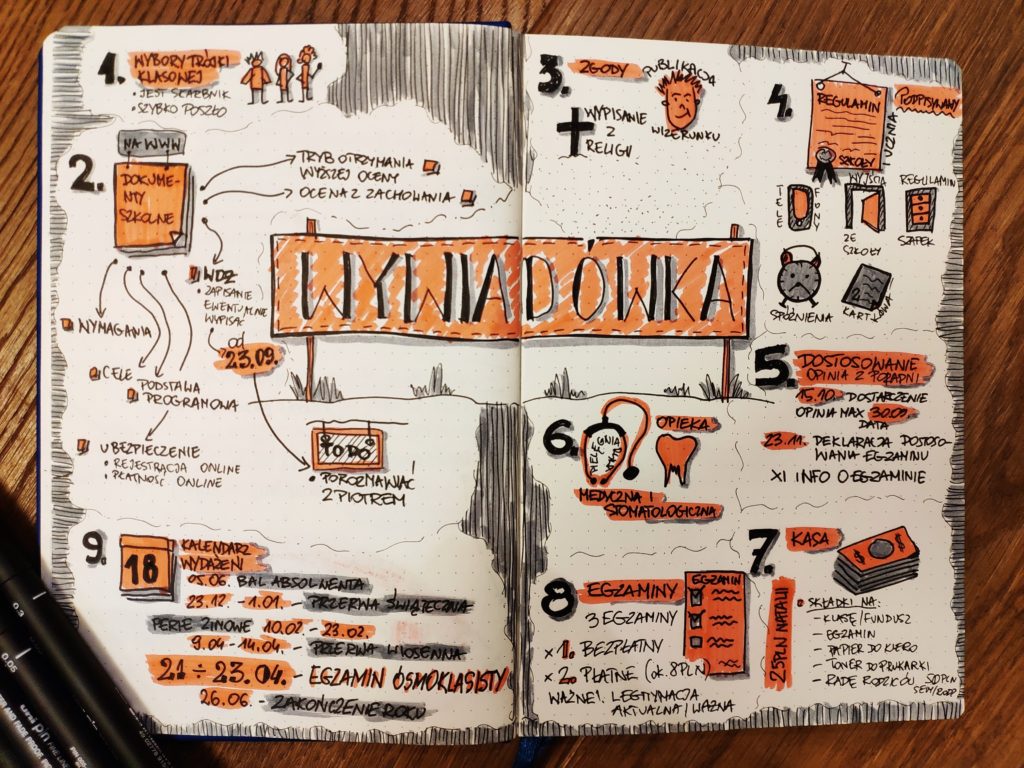 WYWIADÓWKA
1. WYBORY TRÓJKI
KLASOWEJ
• JEST SKARBNIK
• SZYBKO POSZŁO
2.
NA WWW
DOKUME-
NTY
SZKOLNE
TRYB OTRZYMANIA
WYŻSZEJ OCENY
OCENA Z ZACHOWANIA
WDŻ
• ZAPISANIE
EWENTUALNIE
WYPISAĆ
od
23.09.
WYMAGANIA
CELE
PODSTAWA
PROGRAMOWA
UBEZPIECZENIE
• REJESTRACJA ONLINE
• PŁATNOŚĆ ONLINE
TO DO
• POROZMAWIAĆ
Z PIOTREM
3. ZGODY
PUBLIKACJA
WIZERUNKU
WYPISANIE
Z
RELIGII
4.
REGULAMIN
UCZNIA
SZKOŁY
PODPISYWANY
TELE
FONY
WYJŚCIA
ZE
SZKOŁY
REGULAMIN
SZAFEK
SPÓŹNIENIA
KARTKÓWKA
5. DOSTOSOWANIE
OPINIA Z PORADNI
15.10. DOSTARCZENIE
OPINIA MAX 30.09.
DATA
23.11. DEKLARACJA DOSTOSO-
WANIA EGZAMINU
XI INFO O EGZAMINIE
6.
PIELĘGNIA
OPIEKA
MEDYCZNA I
STOMATOLOGICZNA
7. KASA
$ $
23PLN NATALII
• SKŁADKI NA:
– KLASĘ/FUNDUSZ
– EGZAMIN
– PAPIER DO KSERO
– TONER DO DRUKARKI
– RADĘ RODZICÓW 50PLN
8 EGZAMINY
EGZAMIN
3 EGZAMINY
× 1. BEZPŁATNY
× 2. PŁATNE (ok. 8PLN)
WAŻNE! LEGITYMACJA
AKTUALNA/WAŻNA
9.
18
KALENDARZ
WYDAŻEŃ
05.06. BAL ABSOLWENTA
23.12. – 1.01. – PRZERWA ŚWIĄTECZNA
FERIE ZIMOWE 10.02. – 23.02.
9.04 – 14.04. – PRZERWA WIOSENNA
21 ÷ 23.04. – EGZAMIN ÓSMOKLASISTY
26.06. – ZAKOŃCZENIE ROKU
0.3
0.05
uni pin FINE LINE